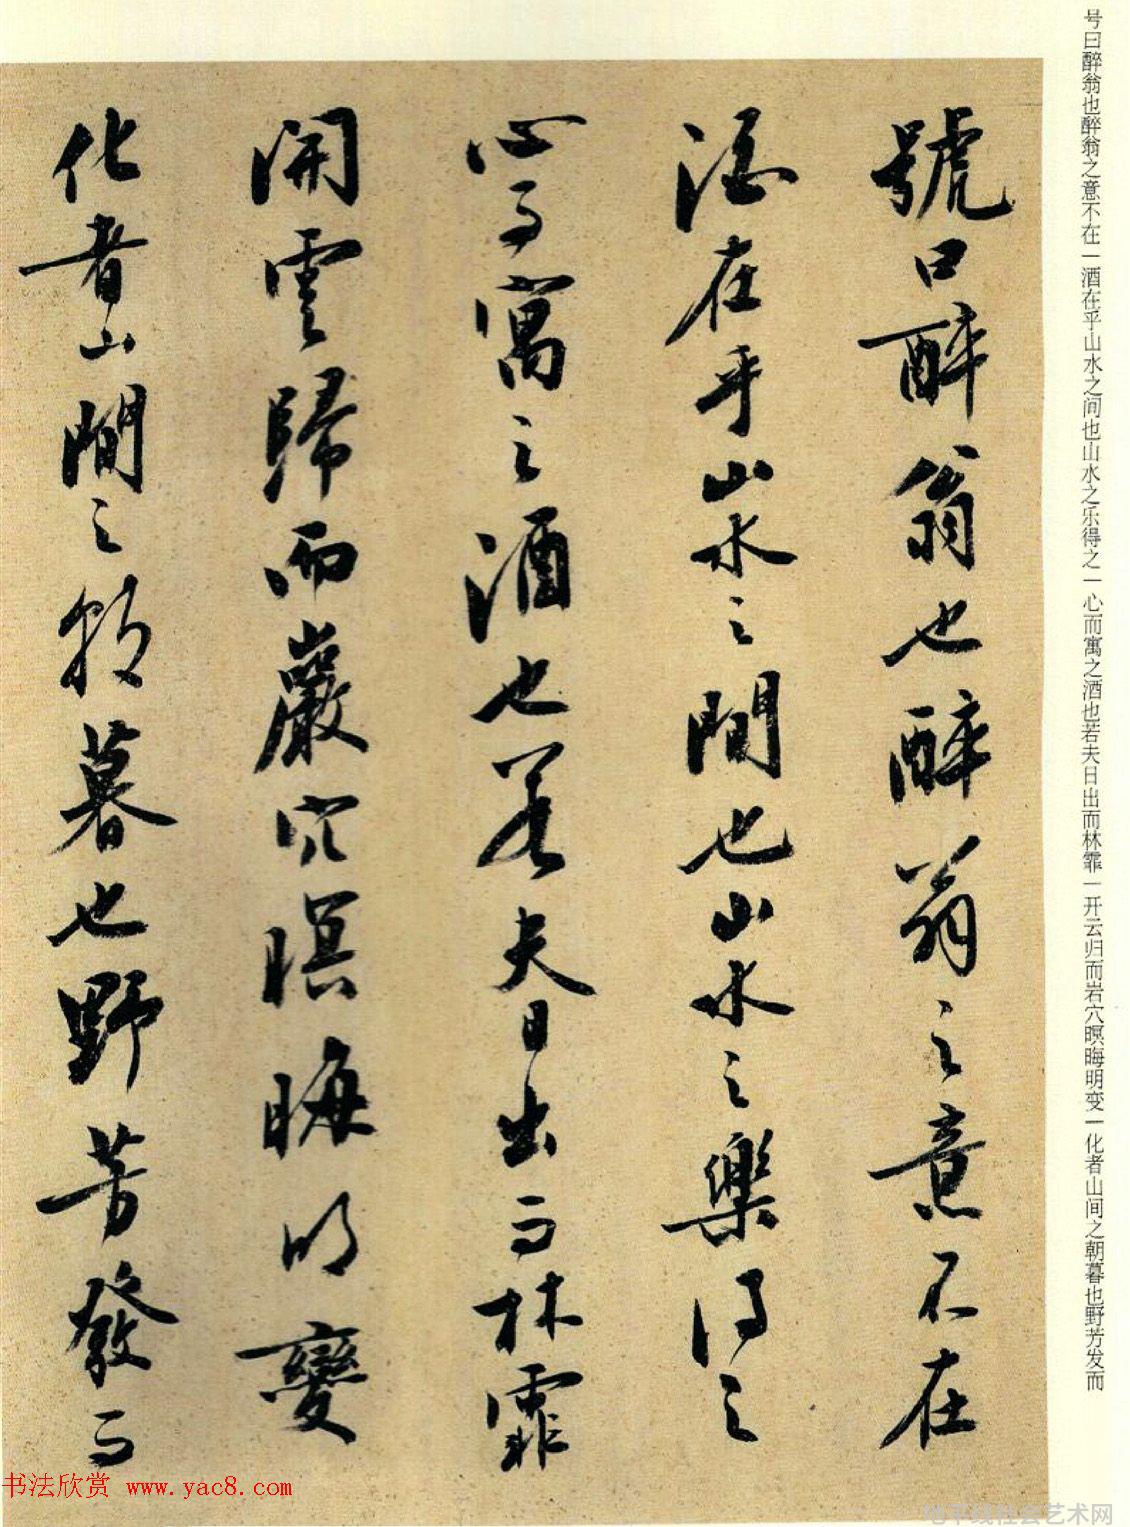 号曰醉翁也醉翁之意不在一酒在乎山水之间也山水之乐得之一心而寓之酒也若夫日出而林霏一开云归而岩穴暝晦明变一化者山间之朝暮也野芳发而
號曰醉翁也醉翁之意不在
酒在乎山水之間也山水之樂得之
心而寓之酒也若夫日出而林霏
開雲歸而巖穴暝晦明變
化者山間之朝暮也野芳發而
书法欣赏 www.yac8.com
地平线社会艺术网